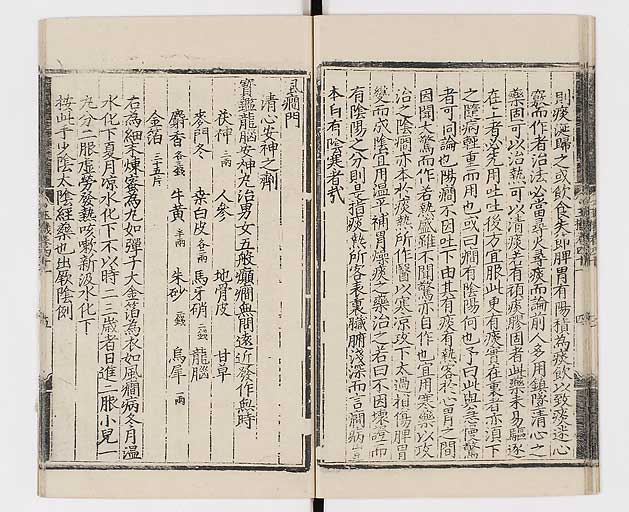 則痰涎歸之或飲食失節脾胃有陽積為痰飲以致痰迷心
竅而作者治法必當尋火尋痰而論前人多用鎮墜清心之
藥固可以治熱可以清痰若有頑痰膠固者此藥未易驅逐
在上者必先用吐吐後方宜服此更有痰實在裏者亦須下
之隨病輕重而用也或曰癇有陰陽何也予曰此與急慢驚
者可同論也陽癇不因吐下由其有痰有熱客於心胃之間
因聞大驚而作若熱盛雖不聞驚亦自作也宜用寒藥以攻
治之陰癇亦本於痰熱所作醫以寒凉攻下太過損傷脾胃
變而成陰宜用溫平補胃燥痰之藥治之若曰不因壞證而
有陰陽之分則是指痰熱所客表裏臟腑淺深而言癇病
本自有陰寒者哉
風癇門
清心安神之劑
寳鑑龍腦安神丸治男女五般癲癇無問遠近發作無時
茯神三兩 人參 地骨皮 甘草
麥門冬 桑白皮各二兩 馬牙硝二錢 龍腦
麝香各三錢 牛黃半兩 朱砂二錢 烏犀一兩
金箔三十五片
右為細末煉蜜為丸如彈子大金箔為衣如風癇病冬月温
水化下夏月凉水化下不以時二三歲者日進二服小兒一
丸分二服虛勞發熱咳嗽新汲水化下
按此手少陰太陰經藥也出厥陰例